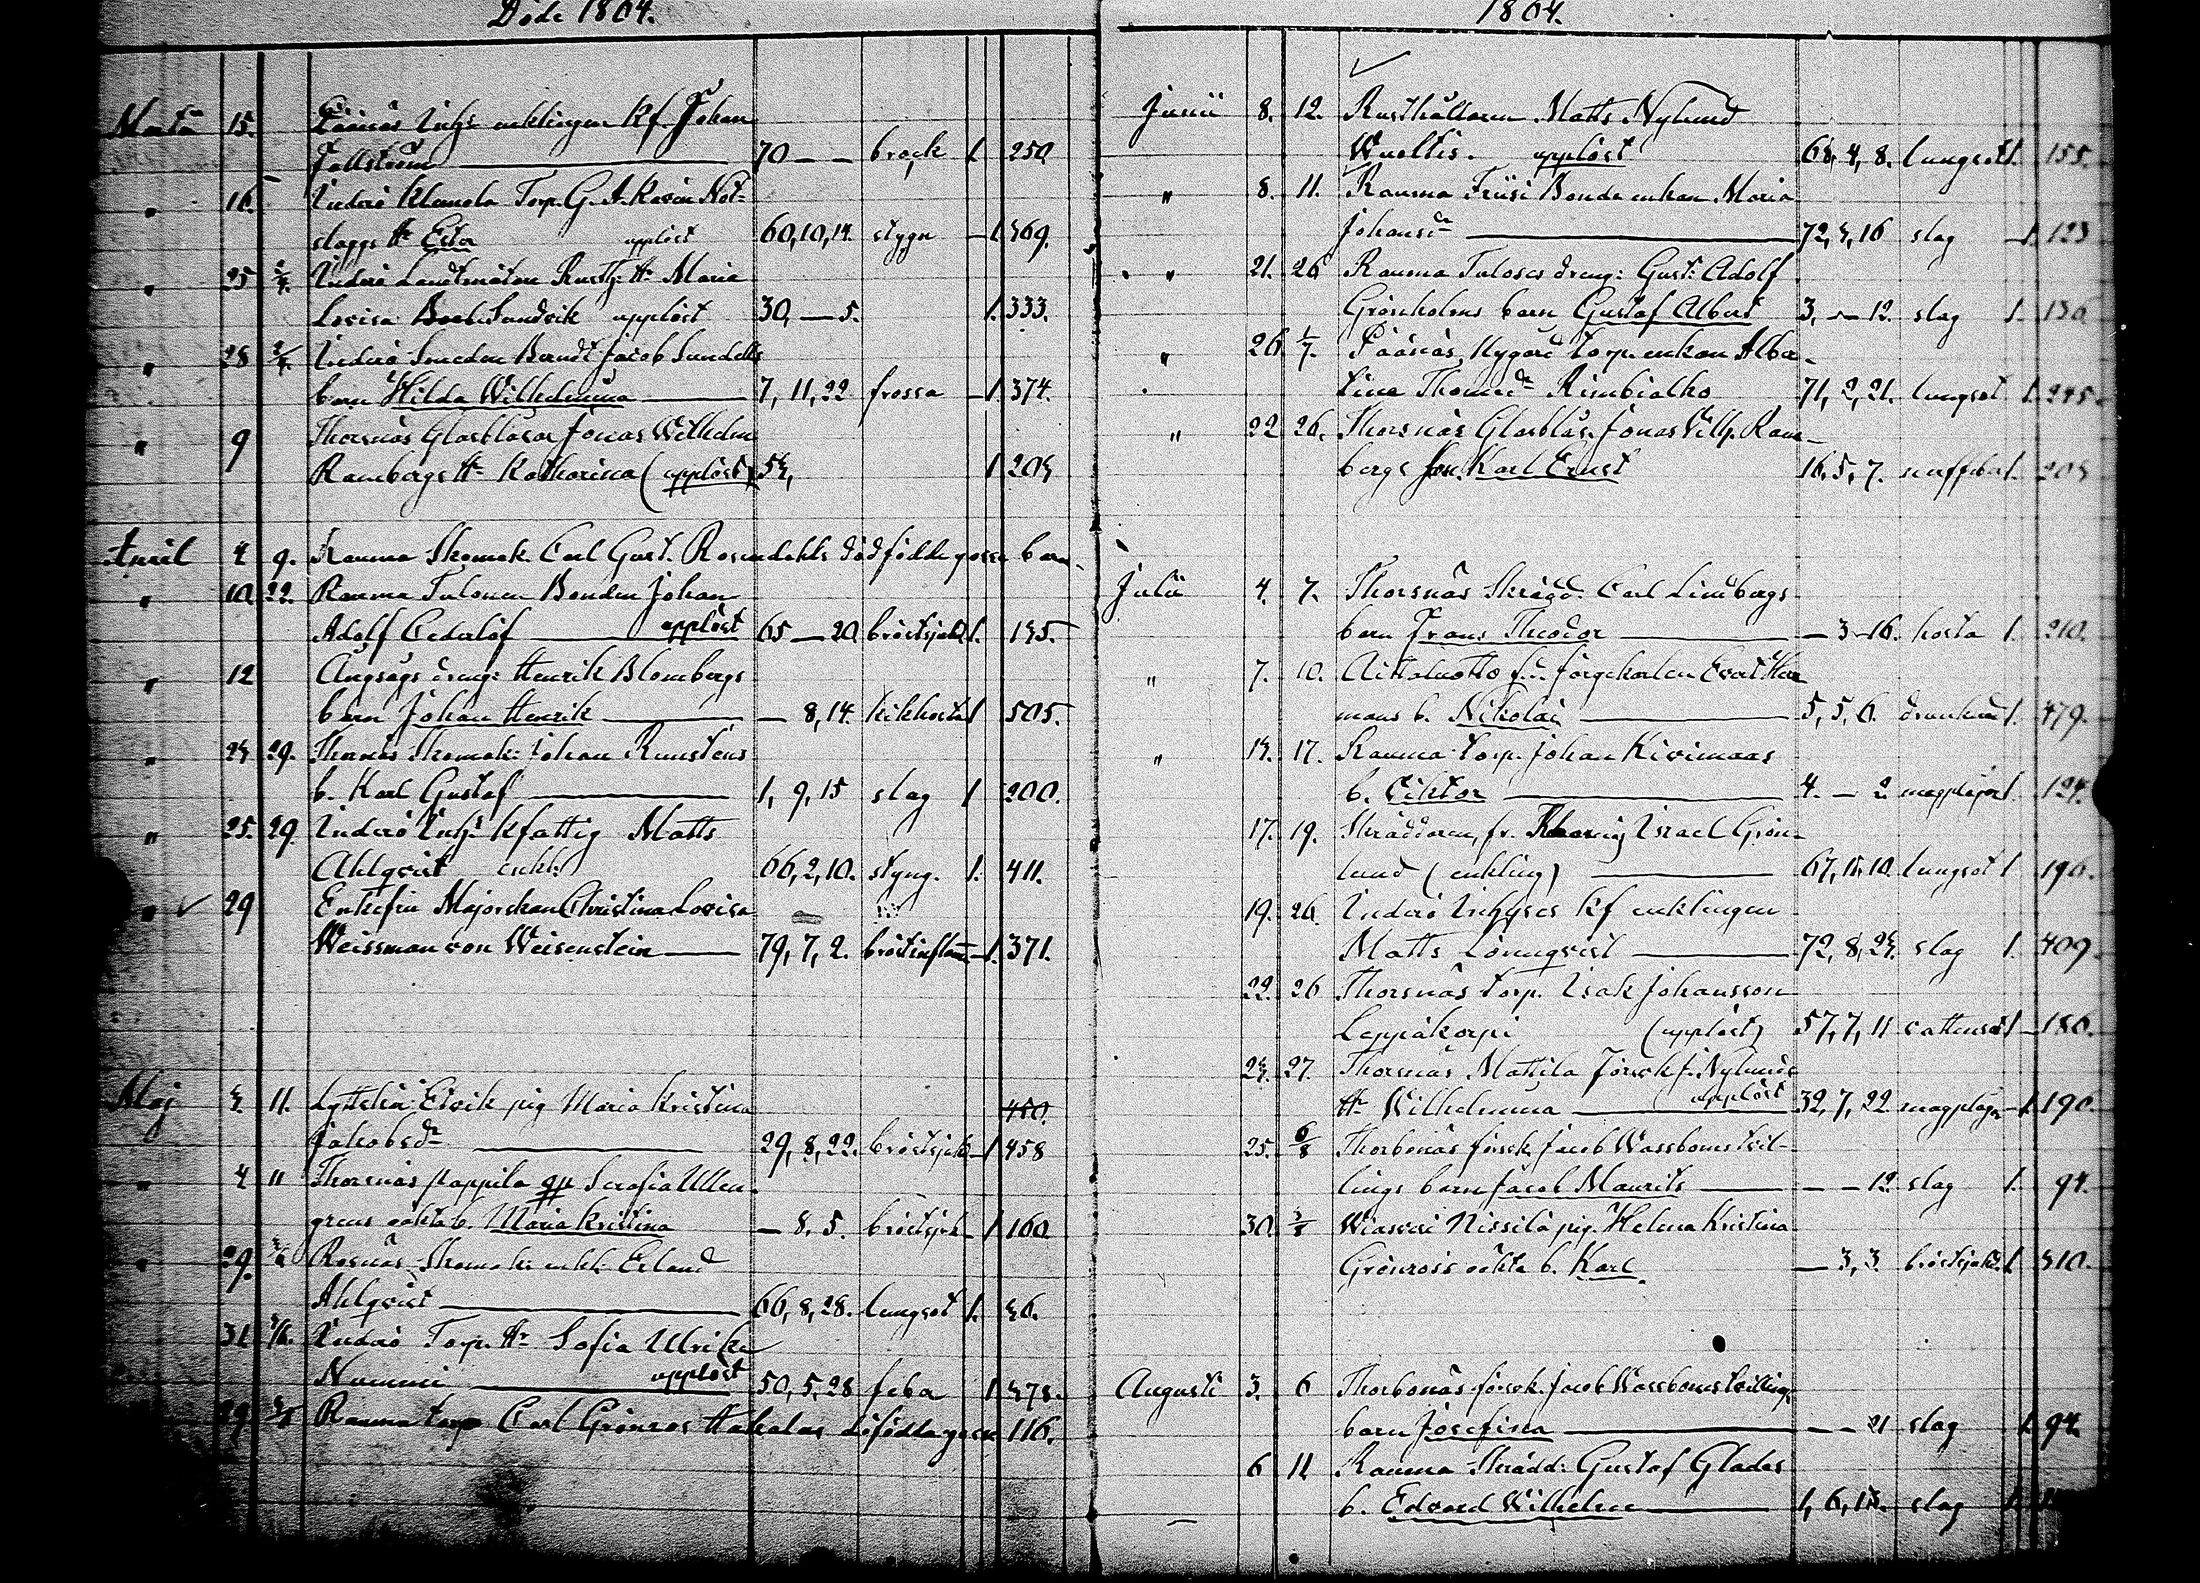 Döde 1864.
Martii 15. Påånäs Inhs enklingen kf. Johan
Fallström 70 — — brock 1. 250
" 16. Inderö Klemola Torp. G. A. Karin Not-
slaggs Hu Ester upplöst 60, 10, 14. stygn 1. 369.
" 25 2/4. Inderö Landtmäteri Rusth: Hu Maria
Lovisa Sundvik upplöst 30, — 5. 1. 333.
" 28 2/4. Inderö Smeden Berndt Jacob Sundells
barn Hilda Wilhelmina 7, 11, 22 frossa 1. 374.
" 9 Thorsnäs Glasblåsar Jonas Wilhelm
Rambergs Hu Katharina (upplöst) 53, 1 203
April 4 9. Rauma Skomak. Carl Gust. Rosendahls dödfödde gosse barn.
" 10 22. Rauma Tulonen Bonden Johan
Adolf Cederlöf upplöst 65 — 20 bröstsjukd. 1. 135.
" 12 Ångsågs dreng: Henrik Blombergs
barn Johan Henrik — 8, 14. kikhosta 1 505.
" 23 29. Thorsnäs Skomak: Johan Runstens
b. Karl Gustaf 1, 9, 15 slag 1 200.
" 25. 29. Inderö Inhs kfattig Matts
Ahlqvist enkl. 66, 2, 10. styng. 1. 411.
" 29 Enkefru Majorskan Christina Lovisa
Weissman von Weisenstein 79, 7, 2. bröstinflam 1. 371.
Maj 3. 11. Lyttskär Elvik pig Maria Kristina 450.
Jakobsdr 29, 8, 22. bröstsjuk 1 458
" 4 11 Thorsnäs Pappila qp Serafia Ullen-
grens oäkta b. Maria Kristina — 8, 5. bröstsjuk 1 160
" 29. 5/6 Rosnäs Skomak: enkl: Erland
Ahlqvist 66, 8, 28. lungsot 1. 36.
31 5/6. Inderö Torp. Hu Sofia Ulrika
Nummi upplöst 50, 5, 28 feber 1. 378.
29. Rauma torp Carl Grönros Hakalas döfödda gosse 116.
1864.
Junii 8. 12. Rusthållaren Matts Nylund
Wuoltis. upplöst 68, 4, 8. lungsot 1. 155.
" 8. 11. Rauma Friisi Bonde enkan Maria
Johansdr 72, 3, 16 slag 1. 123
" 21. 26 Rauma Tuloses dreng: Gust: Adolf
Grönholms barn Gustaf Albert 3, — 12. slag 1. 136
" 26 1/7. Påånäs, Nygård torp. enkan Alber-
tina Thomedr Rimbialho 71, 2, 21. lungsot 1. 245.
" 22 26. Thorsnäs Glasblås. Jonas Vilh. Ram-
bergs son Karl Ernst 16, 5, 7. 1. 203
Julii 4. 7. Thorsnäs Skrädd. Carl Lindbergs
barn Frans Theodor — 3 16. hosta 1. 210.
" 7. 10. Aittaluotto f.d. färgekarlen Evert Her-
mans b. Nikolai 5, 5, 6. drunknad 1. 479.
" 13. 17. Rauma torp. Johan Kivimaas
b. Viktor 4. — 2 magplåga 1. 124.
17. 19. Skräddaren, fr. Israel Grön-
lund (enkling) 67, 11, 10. lungsot 1 196.
19. 26. Inderö Inhyses kf enklingen
Matts Lönnqvist 72, 8, 23. slag 1. 409
22. 26 Thorsnäs torp. Isak Johansson
Leppäkorpi (upplöst) 57, 7, 11 vattusot 1 180.
23. 27. Thorsnäs Mattila försvkf. Nylunds
Hu Wilhelmina upplöst 32, 7, 22 magplåga 1. 190.
25. 6/8 Thorbonäs försvk Jacob Wassboms tvil-
lings barn Jacob Maurits — — 12 slag 1. 94.
30. 3/8 Wiasvesi Nissilä pig. Helena Kristina
Grönross oäkta b. Karl — 3, 3. bröstsjukd. 1. 310.
Augusti 3. 6 Thorbonäs försvk. Jacob Wassboms tvillings
barn Josefina — — 21 slag 1. 94.
6 11 Rauma Skrädd: Gustaf Glader
b. Edvard Wilhelm 1, 6, 13. slag 1.